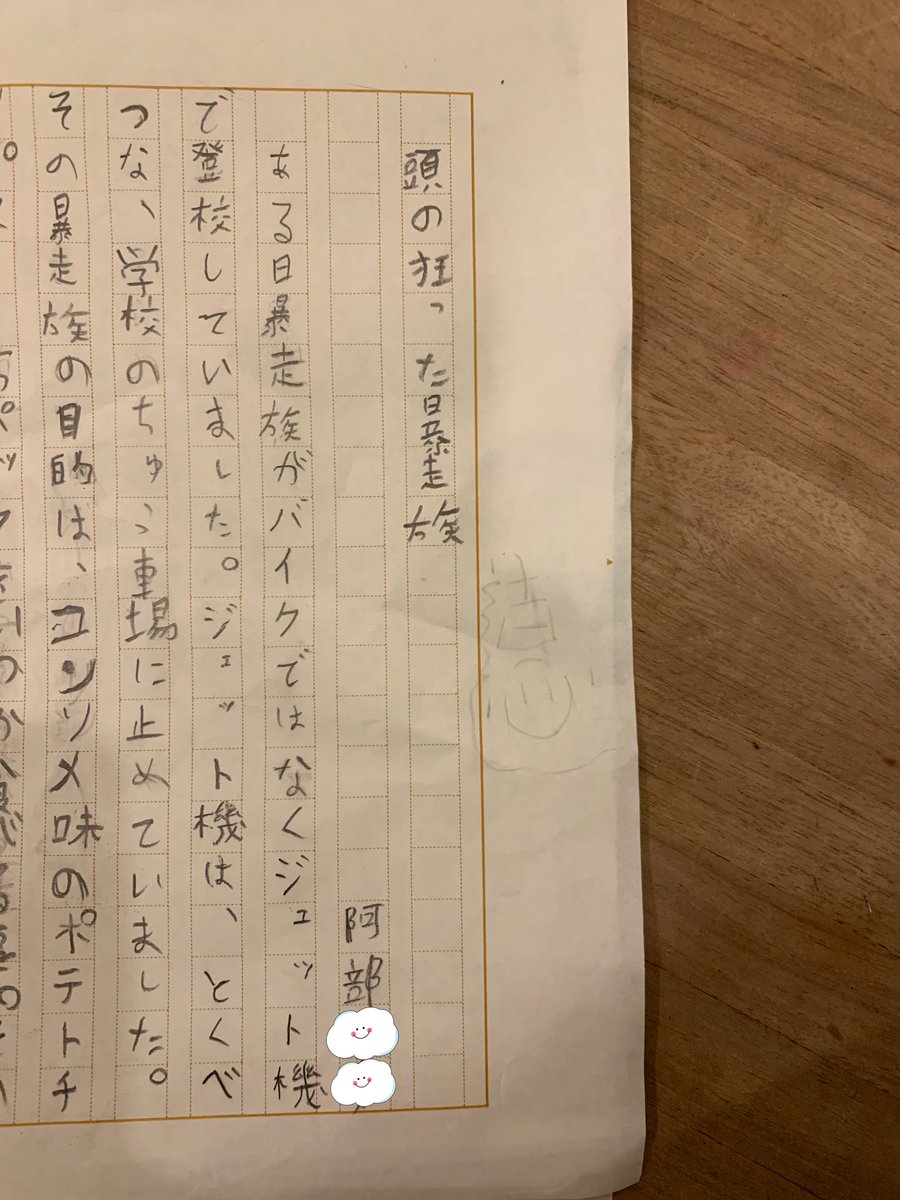 頭の狂った暴走族
阿部
ある日暴走族がバイクではなくジェット機
で登校していました。ジェット機は、とくべ
つな、学校のちゅう車場に止めていました。
その暴走族の目的は、コンソメ味のポテトチ